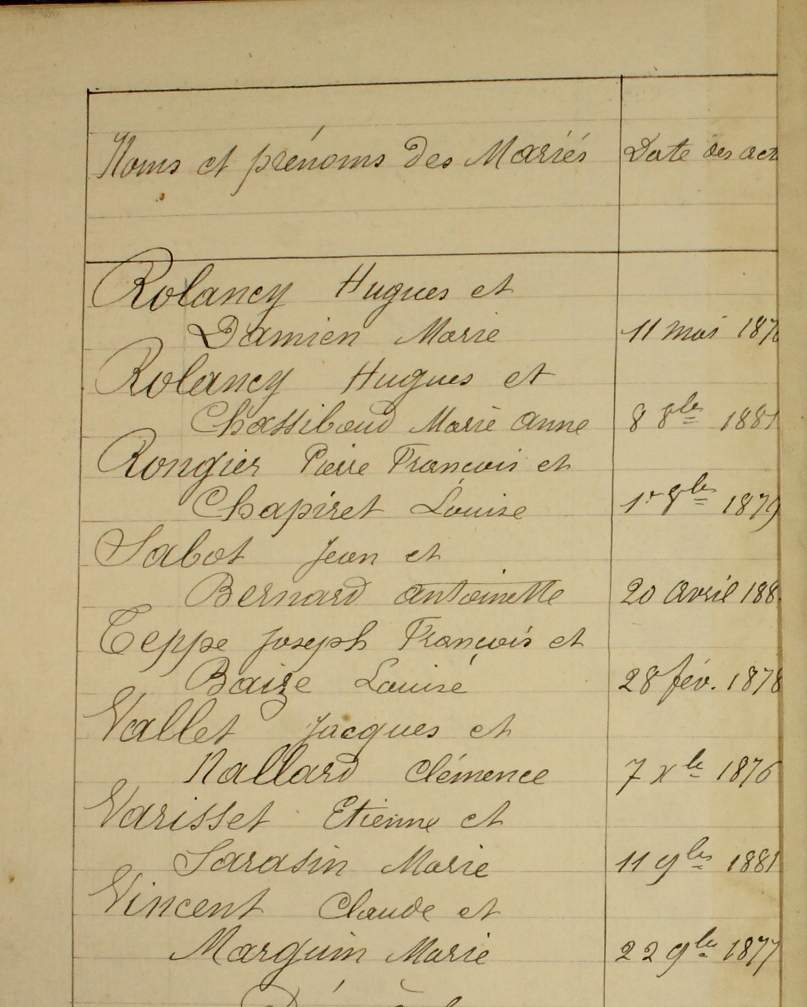 Noms et prénoms des Mariés Date des act
Rolancy Hugues et
Damien Marie 11 mai 187
Rolancy Hugues et
Chassiboud Marie Anne 8 8bre 1881
Rongier Pierre François et
Chapiret Louise 1r 8bre 1879
Sabot Jean et
Bernard Antoinette 20 Avril 188
Teppe Joseph François et
Baize Louise 28 fév. 1878
Vallet Jacques et
Nallard Clémence 7 xbre 1876
Varisset Etienne et
Sarasin Marie 11 9bre 1881
Vincent Claude et
Marguin Marie 22 9bre 1877